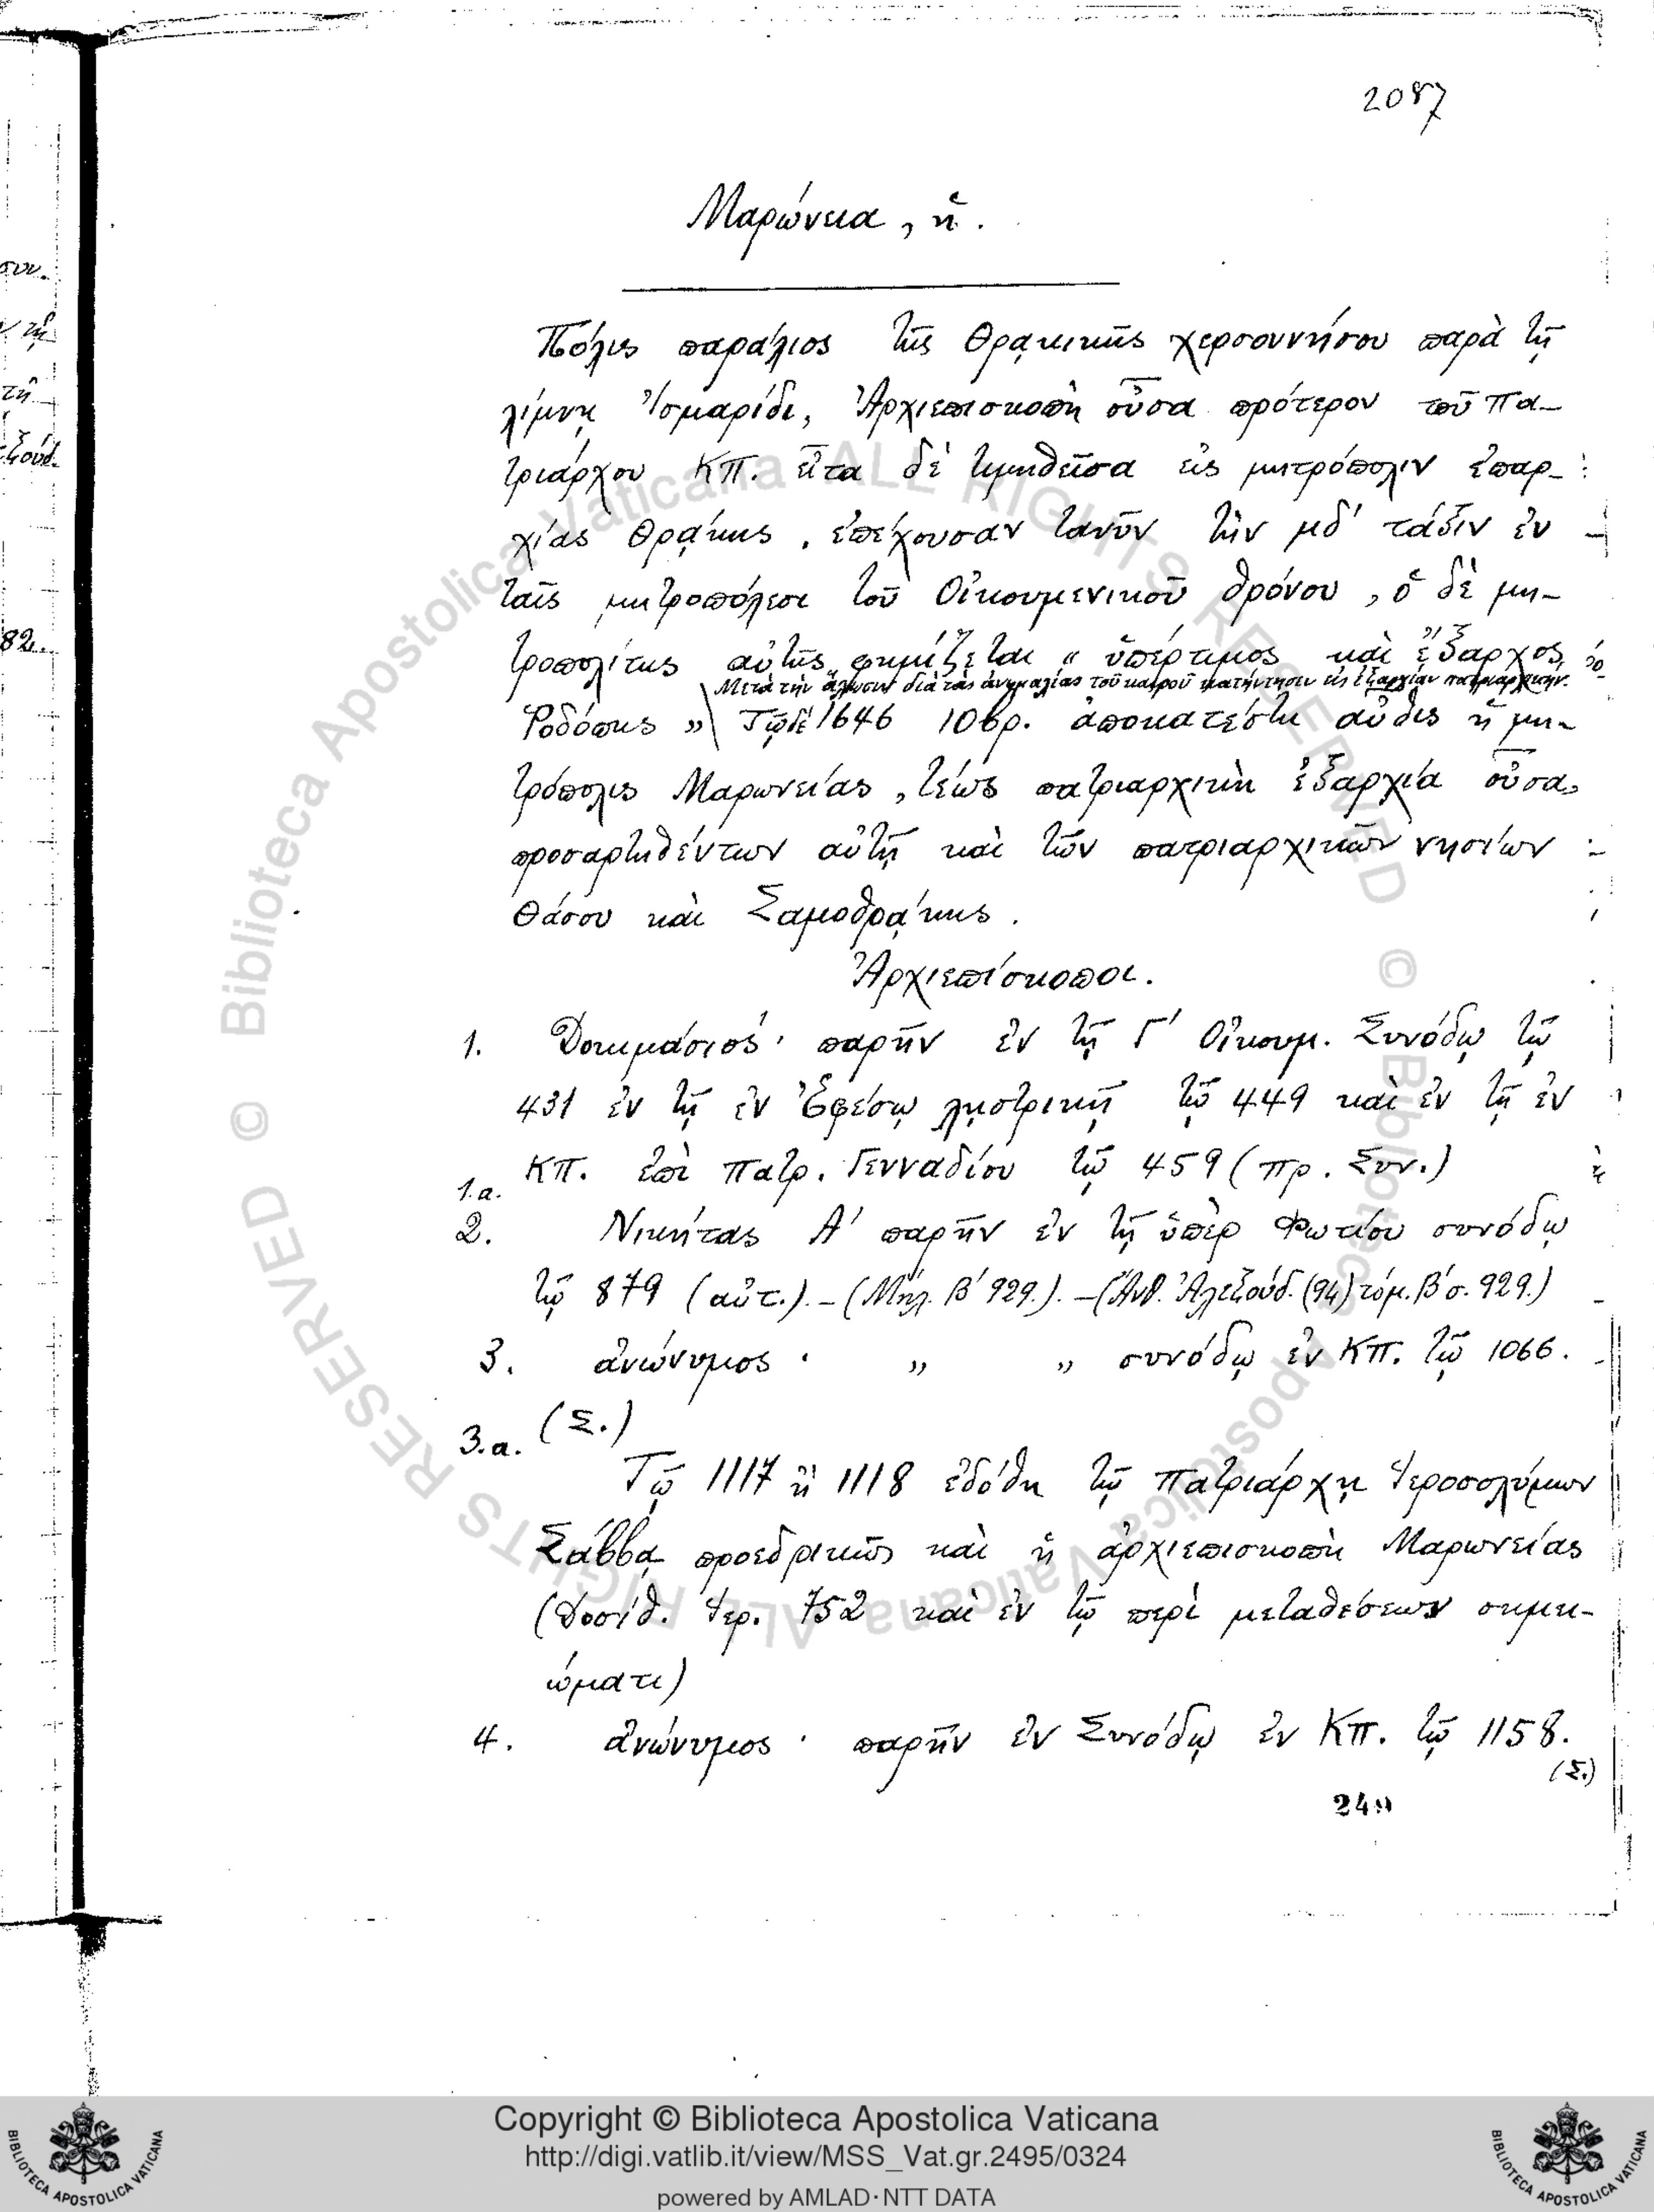 2087
Μαρώνεια, ἡ.
Πόλις παράλιος τῆς Θρᾳκικῆς χερσοννήσου παρὰ τῇ
λίμνῃ Ἰσμαρίδι, Ἀρχιεπισκοπὴ οὖσα πρότερον τοῦ Πα-
τριάρχου ΚΠ. εἶτα δὲ τιμηθεῖσα εἰς μητρόπολιν ἐπαρ-
χίας Θρᾴκης, ἐπέχουσαν τανῦν τὴν μδ' τάξιν ἐν
ταῖς μητροπόλεσι τοῦ Οἰκουμενικοῦ θρόνου, ὁ δὲ μη-
τροπολίτης αὐτῆς φημίζεται „ ὑπέρτιμος καὶ ἔξαρχος
Μετὰ τὴν ἅλωσιν διὰ τὰς ἀνωμαλίας τοῦ καιροῦ κατήντησεν εἰς ἐξαρχίαν πατριαρχικήν.
Ῥοδόπης „ Τῷ δὲ 1646 10βρ. ἀποκατέστη αὖθις ἡ μη-
τρόπολις Μαρωνείας, τέως πατριαρχικὴ ἐξαρχία οὖσα,
προσαρτηθέντων αὐτῇ καὶ τῶν πατριαρχικῶν νησίων
Θάσου καὶ Σαμοθρᾴκης.
Ἀρχιεπίσκοποι.
1. Δοκιμάσιος· παρῆν ἐν τῇ Γ' Οἰκουμ. Συνόδῳ τῷ
431 ἐν τῇ ἐν Ἐφέσῳ λῃστρικῇ τῷ 449 καὶ ἐν τῇ ἐν
ΚΠ. ἐπὶ Πατρ. Γενναδίου τῷ 459 (πρ. Συν.)
1.α.
2. Νικήτας Α' παρῆν ἐν τῇ ὑπὲρ Φωτίου συνόδῳ
τῷ 879 (αὐτ.). – (Μηλ. Β' 929.). – (Ἀνθ. Ἀλεξούδ. (94) τόμ. Β' σ. 929.)
3. ἀνώνυμος · „ „ συνόδῳ ἐν ΚΠ. τῷ 1066.
(Σ.)
3.α.
Τῷ 1117 ἢ 1118 ἐδόθη τῷ Πατριάρχῃ Ἱεροσολύμων
Σάββᾳ προεδρικῶς καὶ ἡ ἀρχιεπισκοπὴ Μαρωνείας
(Δοσίθ. Ἱερ. 752 καὶ ἐν τῷ περὶ μεταθέσεων σημει-
ώματι)
4. ἀνώνυμος · παρῆν ἐν Συνόδῳ ἐν ΚΠ. τῷ 1158.
(Σ.)
249
Copyright © Biblioteca Apostolica Vaticana
http://digi.vatlib.it/view/MSS_Vat.gr.2495/0324
powered by AMLAD·NTT DATA